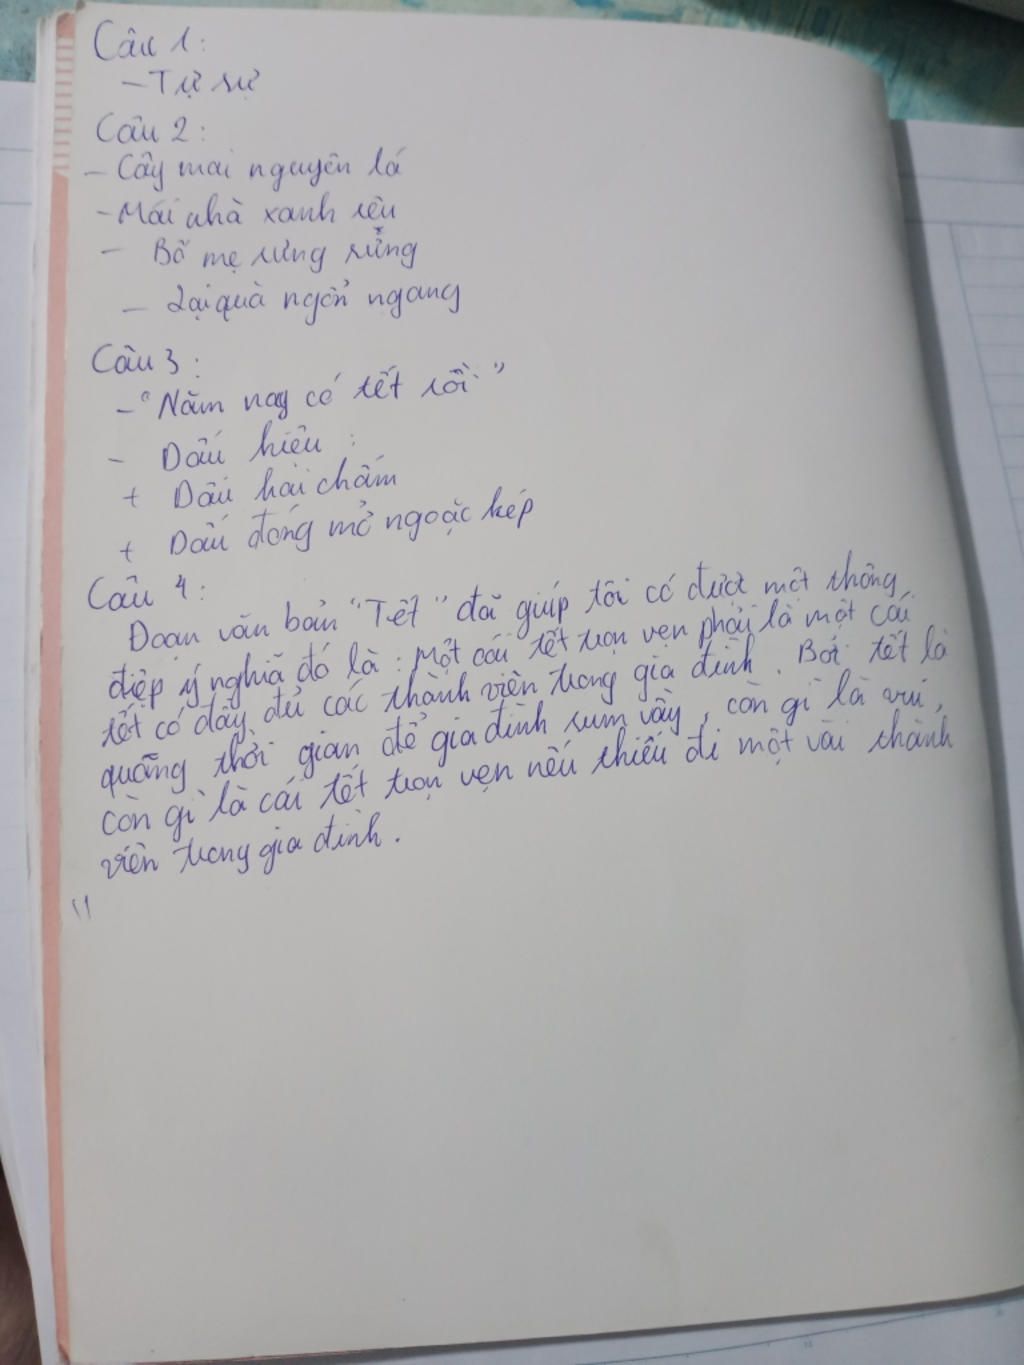 Câu 1:
– Tự sự
Câu 2:
– Cây mai nguyên lá
- Mái nhà xanh rêu
- Bố mẹ rưng rưng
- Lại quà ngổn ngang
Câu 3:
- "Năm nay có tết rồi"
- Dấu hiệu:
+ Dấu hai chấm
+ Dấu đóng mở ngoặc kép
Câu 4:
Đoạn văn bản "Tết" đã giúp tôi có được một thông
điệp ý nghĩa đó là: Một cái tết trọn vẹn phải là một cái
tết có đầy đủ các thành viên trong gia đình. Bởi tết là
quãng thời gian để gia đình sum vầy, còn gì là vui,
còn gì là cái tết trọn vẹn nếu thiếu đi một vài thành
viên trong gia đình.